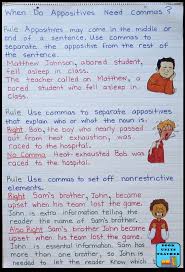 When Do Appositives Need Commas?
Rule Appositives may come in the middle or
end of a sentence. Use commas to
separate the appositive from the rest of
the sentence.
Matthew Johnson, a bored student,
fell asleep in class.
The teacher called on Matthew, a
bored student who fell asleep in
class.
Rule Use commas to separate appositives
that explain who or what the noun is.
Right Bob, the boy who nearly passed
out from heat exhaustion, was
raced to the hospital.
No Comma Heat exhausted Bob was
raced to the hospital.
Rule Use commas to set off nonrestrictive
elements.
Right Sam's brother, John, became
upset when his team lost the game.
John is extra information telling the
reader the name of Sam's brother.
Also Right Sam's brother John became
upset when his team lost the game.
John is essential information. Sam has
more than one brother, so John is
needed to let the reader know which